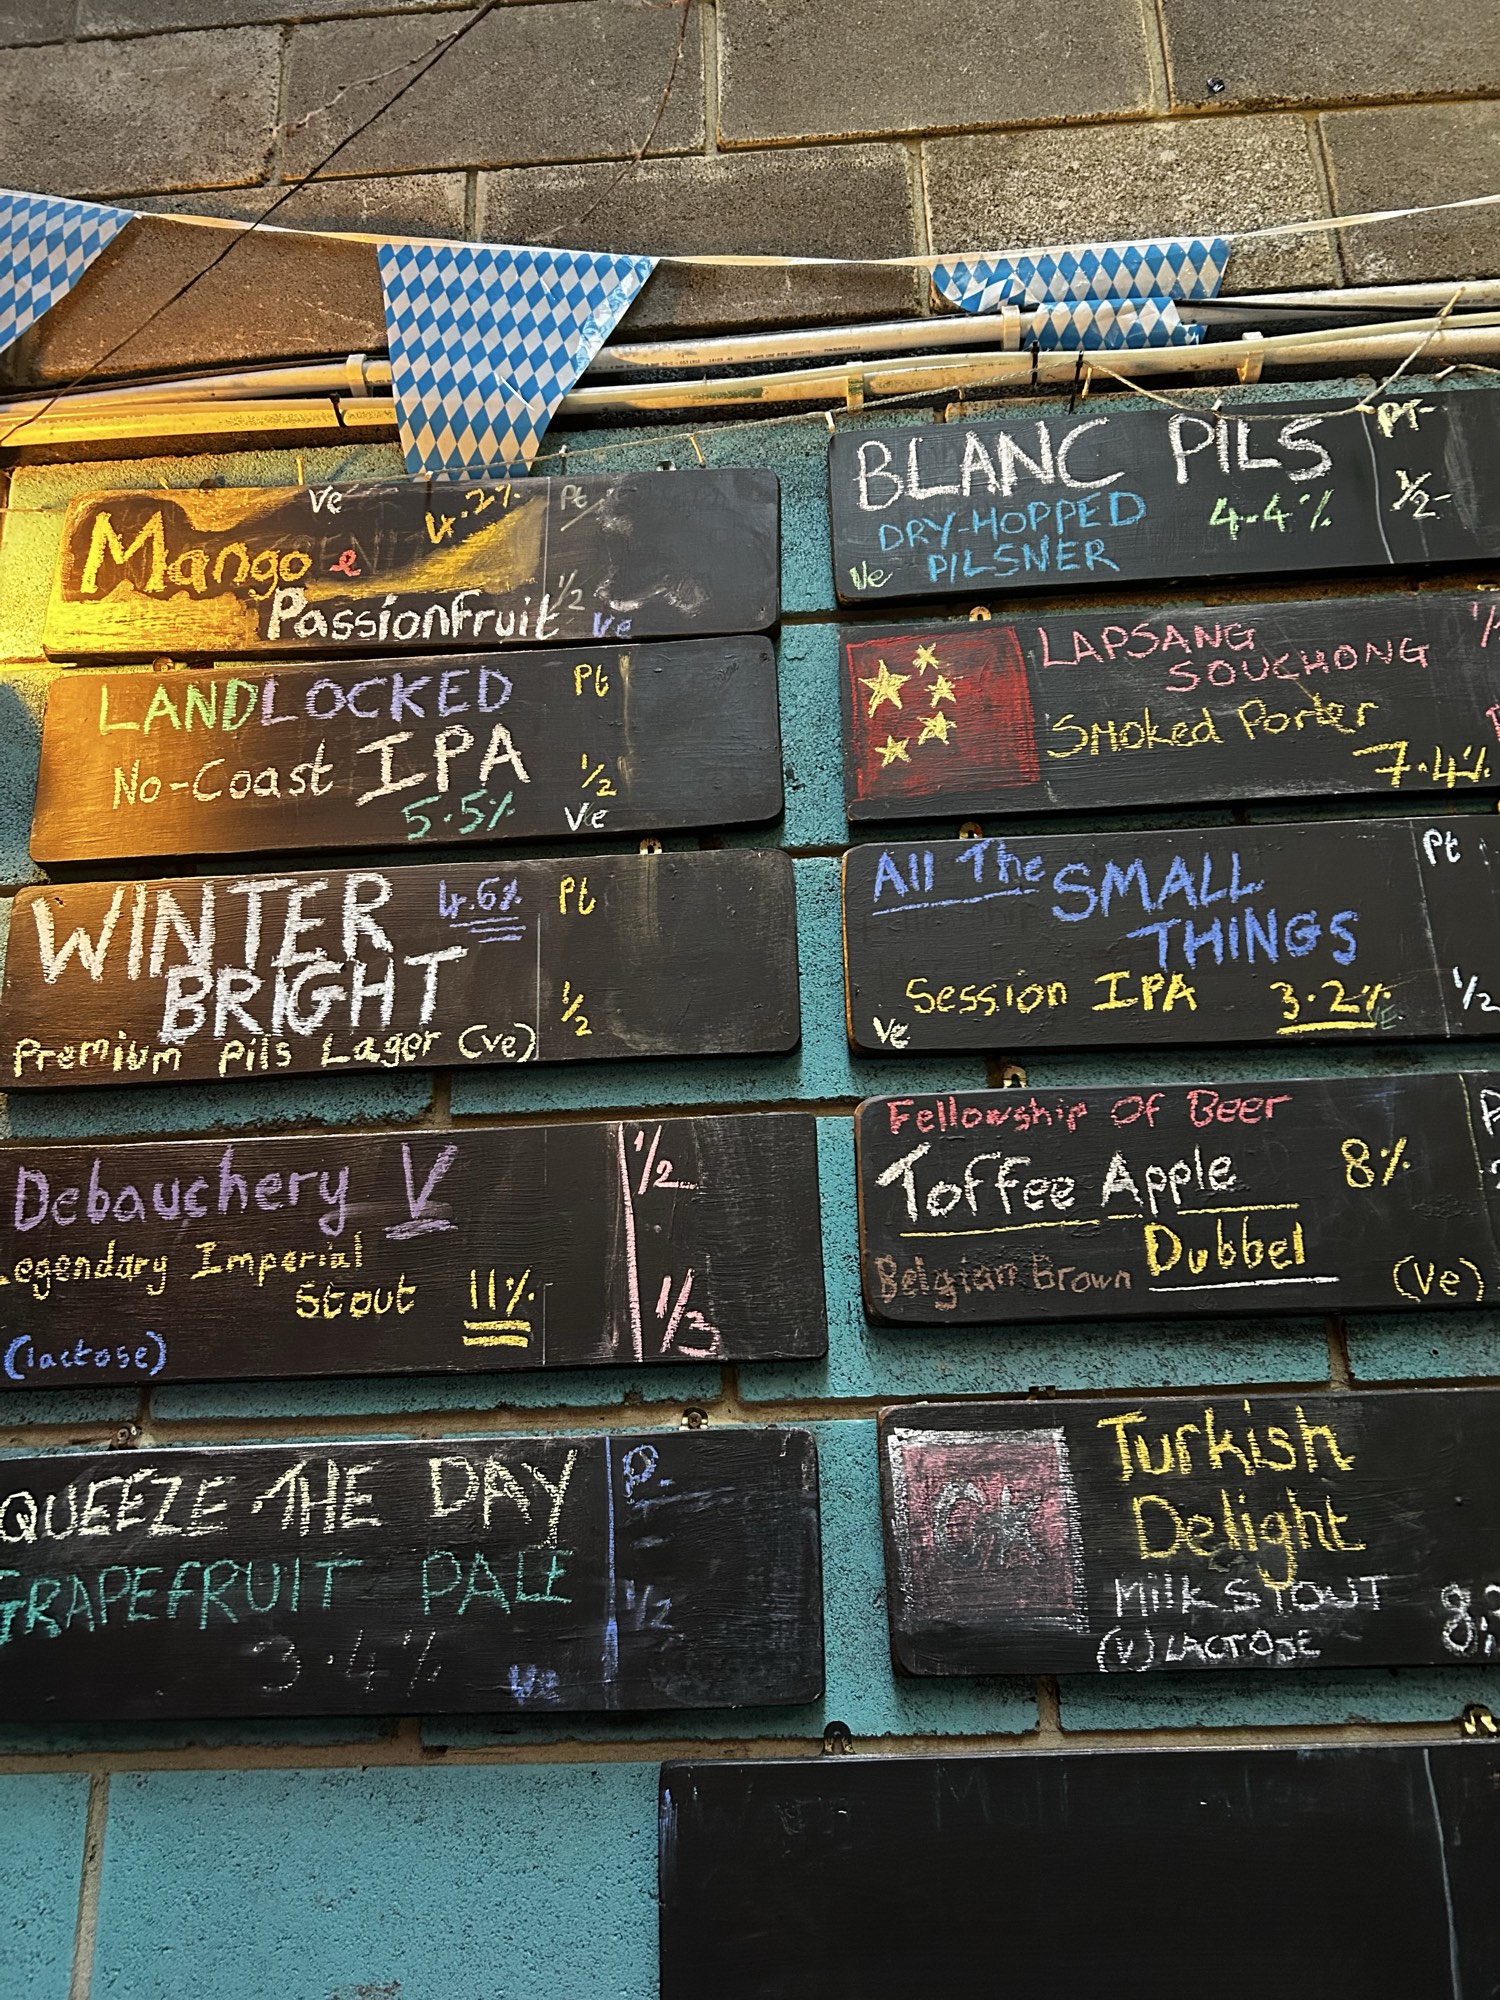 Ve 4.2% Pt
Mango e
Passionfruit 1/2 Ve
LANDLOCKED Pt
No-Coast IPA 1/2
5.5% Ve
WINTER 4.6% Pt
BRIGHT 1/2
Premium Pils Lager (ve)
Debauchery V 1/2
Legendary Imperial
Stout 11% 1/3
(lactose)
QUEEZE THE DAY P.
GRAPEFRUIT PALE 1/2
3.4% Ve
BLANC PILS PT-
DRY-HOPPED 4.4% 1/2-
Ve PILSNER
LAPSANG
SOUCHONG
Smoked Porter
7.4%
All The SMALL Pt
THINGS
Session IPA 3.2% 1/2
Ve
Fellowship Of Beer
Toffee Apple 8%
Belgian Brown Dubbel (Ve)
Turkish
Delight
Milk STOUT
(V) LACTOSE